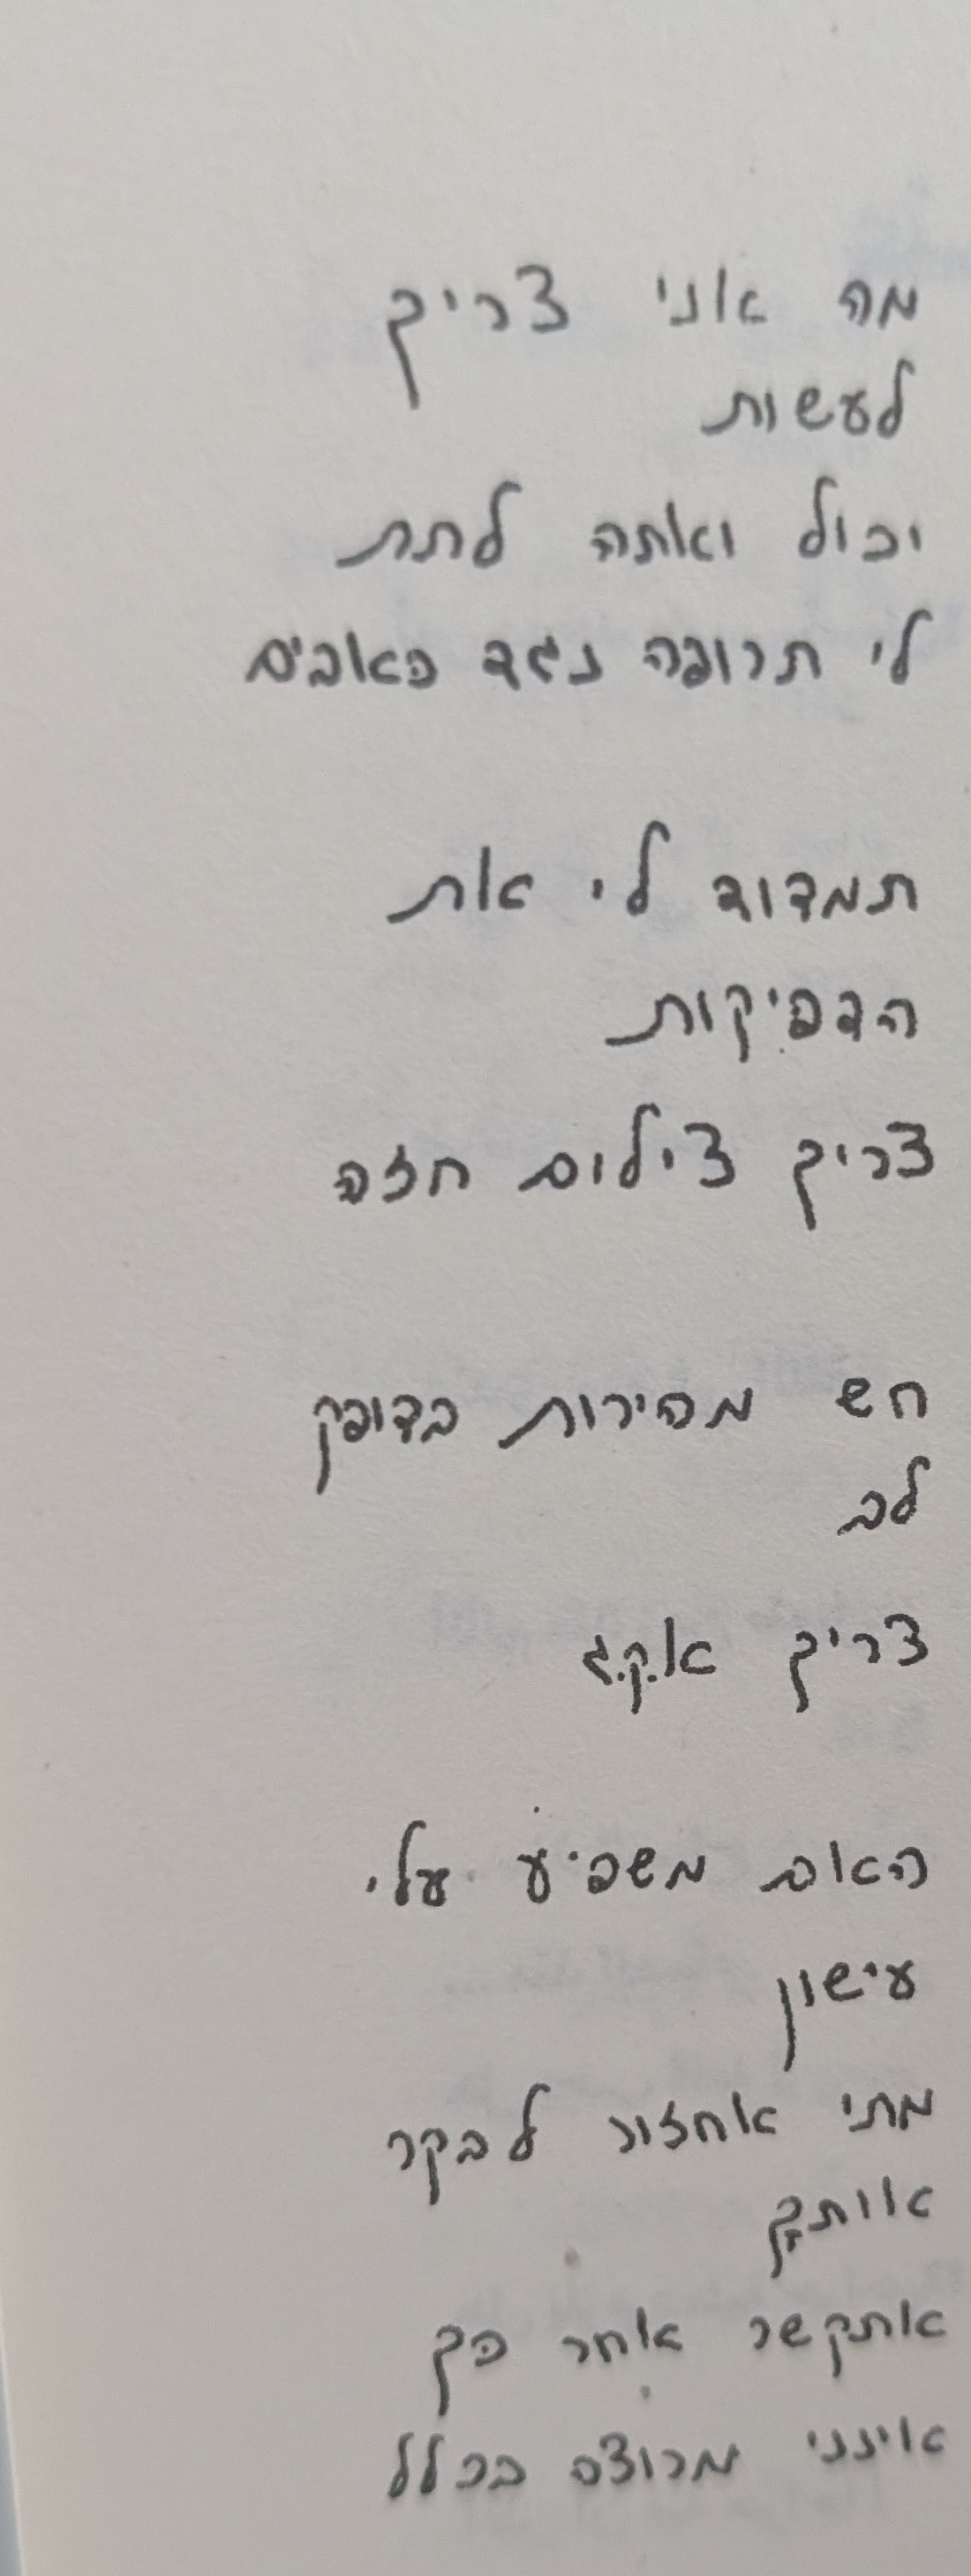 מה אני צריך
לעשות
יכול ואתה לתת
לי תרופה נגד כאבים
תמדוד לי את
הדפיקות
צריך צילום חזה
חש מהירות בדופק
לב
צריך א.ק.ג
האם משפיע עלי
עישון
מתי אחזור לבקר
אותך
אתקשר אחר כך
אינני מרוצה בכלל